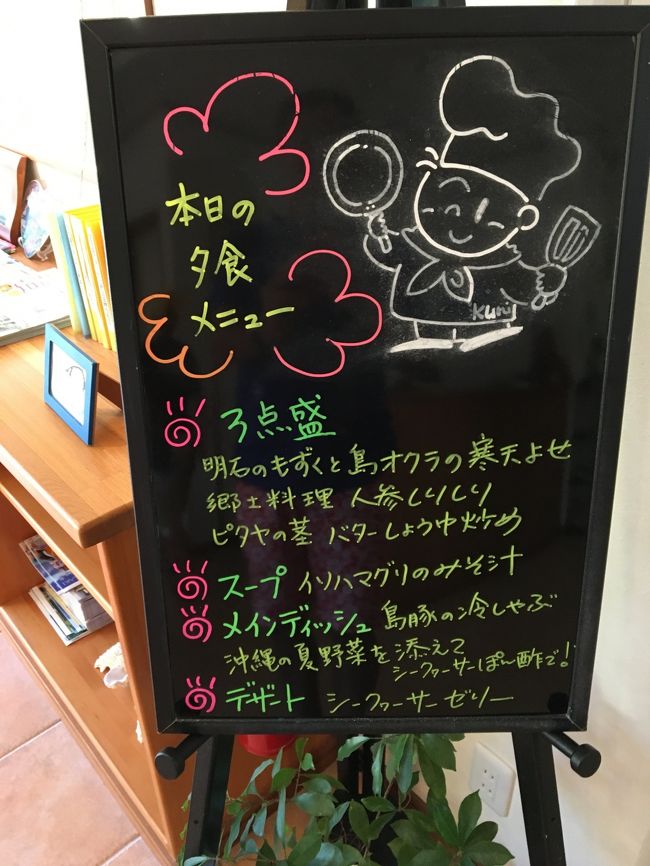 本日の
夕食
メニュー
Kuni
3点盛
明石のもずくと島オクラの寒天よせ
郷土料理 人参しりしり
ピタヤの茎 バターしょうゆ炒め
スープ イソハマグリのみそ汁
メインディッシュ 島豚の冷しゃぶ
沖縄の夏野菜を添えて
シークァーサーぽん酢で!
デザート シークァーサーゼリー